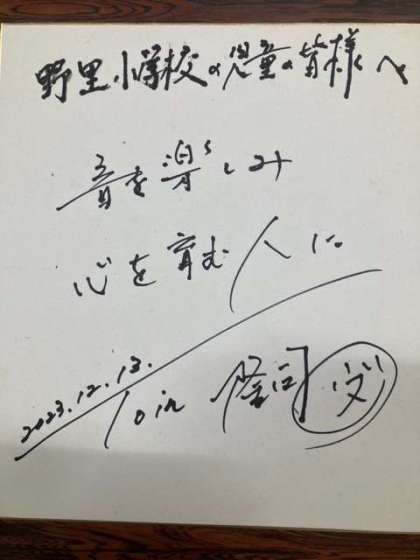 野里小学校の児童の皆様へ
音を楽しみ
心を育む人に。
2023.12.13.